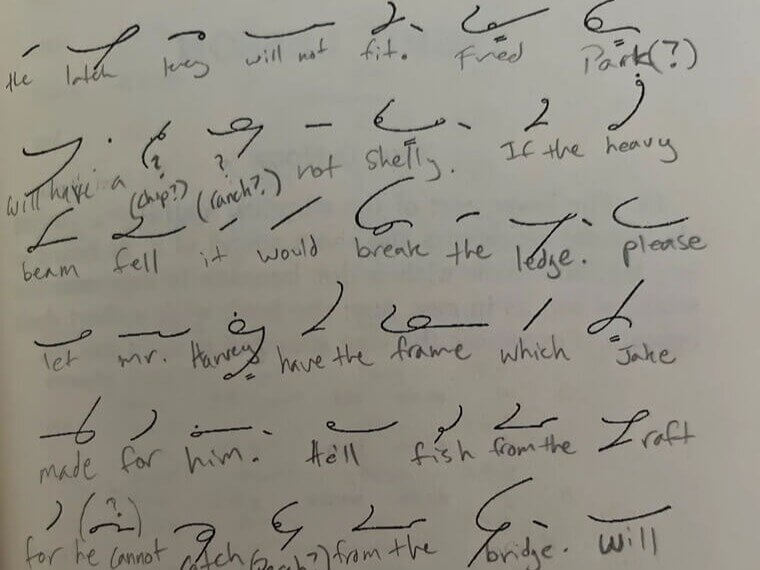 the latch key will not fit. Fred Park(?)
will have a ? (chip?) ? (ranch?) not Shelly. If the heavy
beam fell it would break the ledge. please
let Mr. Harvey have the frame which Jake
made for him. He'll fish from the raft
for he (?) cannot catch from the bridge. will